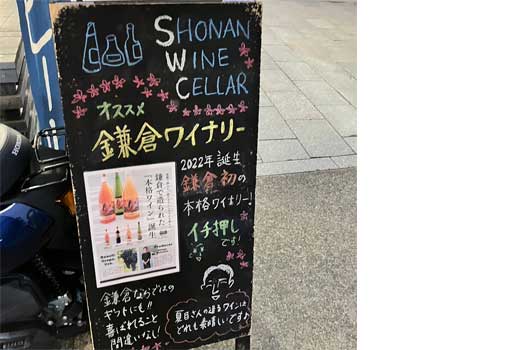 SHONAN
WINE
CELLAR
オススメ
鎌倉ワイナリー
2022年誕生
鎌倉初の
本格ワイナリー!
イチ押し
です!
鎌倉で造られた
「本格ワイン」誕生
鎌倉ならではの
ギフトにも!!
喜ばれること
間違いなし!
夏目さんの造るワインは
どれも素晴しいです♪
HONDA